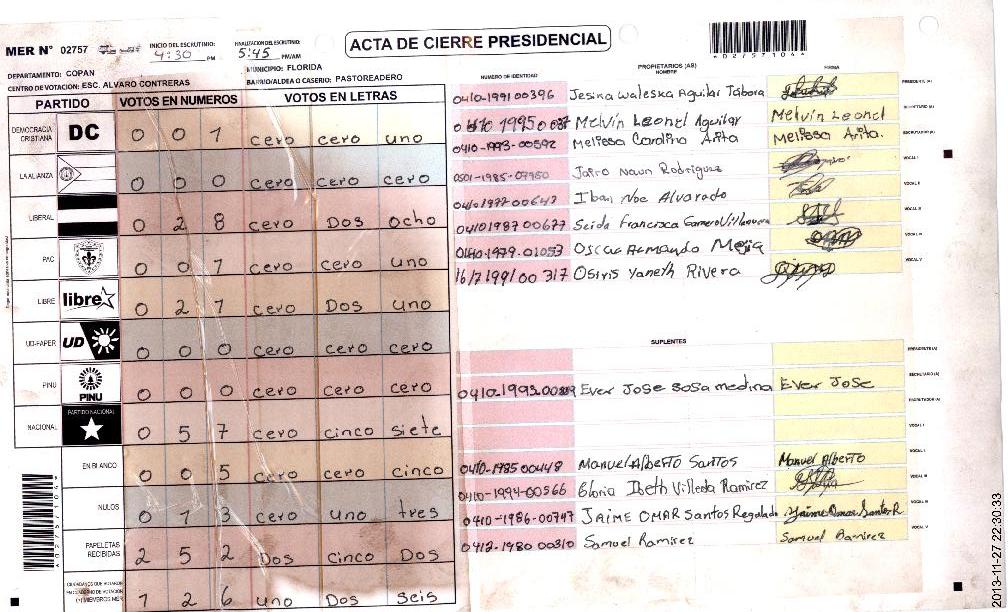 MER N° 02757
INICIO DEL ESCRUTINIO:
4:30 PM
FINALIZACION DEL ESCRUTINIO:
5:45 PM/AM
ACTA DE CIERRE PRESIDENCIAL
4027571064
DEPARTAMENTO: COPAN
MUNICIPIO: FLORIDA
CENTRO DE VOTACIÓN: ESC. ALVARO CONTRERAS
BARRIO/ALDEA O CASERIO: PASTOREADERO
PARTIDO VOTOS EN NUMEROS VOTOS EN LETRAS
DEMOCRACIA CRISTIANA DC 0 0 1 cero cero uno
LA ALIANZA 0 0 0 cero cero cero
LIBERAL 0 2 8 cero Dos ocho
PAC 0 0 1 cero cero uno
LIBRE libre 0 2 1 cero Dos uno
UD-FAPER UD 0 0 0 cero cero cero
PINU PINU 0 0 0 cero cero cero
NACIONAL PARTIDO NACIONAL 0 5 7 cero cinco siete
EN BLANCO 0 0 5 cero cero cinco
NULOS 0 1 3 cero uno tres
PAPELETAS RECIBIDAS 2 5 2 Dos Cinco Dos
CIUDADANOS QUE VOTARON
1 2 6 uno Dos seis
PROPIETARIOS (AS)
NUMERO DE IDENTIDAD NOMBRE FIRMA
0410-1991 00396 Jesina Waleska Aguilar Tabora PRESIDENTE (A)
Melvin Leonel Aguilar Melvin Leonel SECRETARIO (A)
0410-1993-00592 Melissa Carolina Arita Melissa Arita. ESCRUTADOR (A)
0501-1985-07980 Jairo Naun Rodriguez VOCAL I
0410 1977 00647 Iban Noe Alvarado VOCAL II
0410 1987 00677 Seida Francisca VOCAL III
01053 Oscar Armando Mejia VOCAL IV
Osiris Yaneth Rivera VOCAL V
SUPLENTES
PRESIDENTE (A)
Ever Jose Sosa medina Ever Jose SECRETARIO (A)
ESCRUTADOR (A)
VOCAL I
0410-1985 00448 Manuel Alberto Santos Manuel Alberto VOCAL II
0410-1994-00566 Gloria Ibeth Villeda Ramirez VOCAL III
0410-1986-00747 JAIME OMAR Santos Regalado Jaime Omar Santos R VOCAL IV
0412-1980 00310 Samuel Ramirez Samuel Ramirez VOCAL V
4027571064
2013-11-27 22:30:33